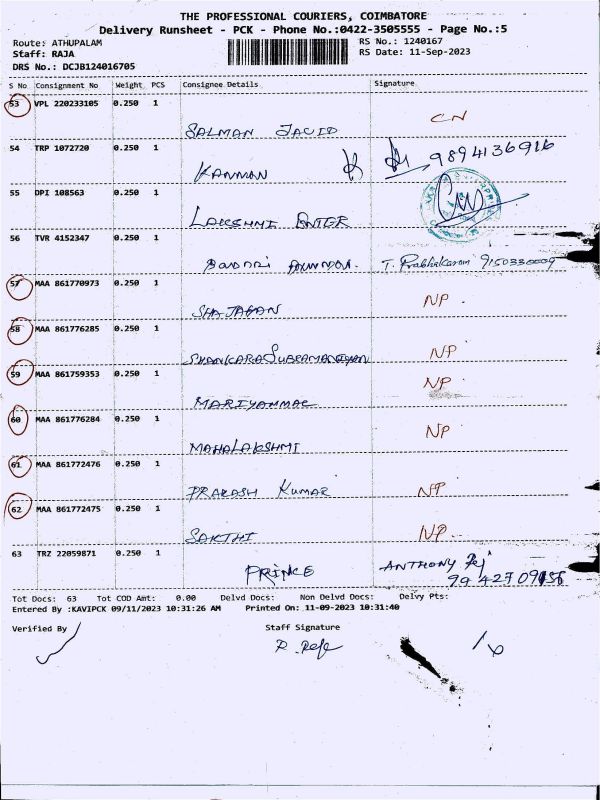 THE PROFESSIONAL COURIERS, COIMBATORE
Delivery Runsheet - PCK - Phone No.:0422-3505555 - Page No.:5
Route: ATHUPALAM
RS No.: 1240167
Staff: RAJA
RS Date: 11-Sep-2023
DRS No.: DCJB124016705
S No Consignment No Weight PCS Consignee Details Signature
53 VPL 220233105 0.250 1
CN
SALMAN JAVID
54 TRP 1072720 0.250 1
9894136916
KANNAN
55 DPI 108563 0.250 1
LAKSHMI ENTER
56 TVR 4152347 0.250 1
T. Prabhakaran 9150330009
57 MAA 861770973 0.250 1
NP
SHAJAGAN
58 MAA 861776285 0.250 1
SHANKARASUBRAMANIYAN NP
59 MAA 861759353 0.250 1
NP
MARIYAMMAL
60 MAA 861776284 0.250 1
NP
MAHALAKSHMI
61 MAA 861772476 0.250 1
PRAKASH KUMAR NP
62 MAA 861772475 0.250 1
SAKTHI NP
63 TRZ 22059871 0.250 1
PRINCE ANTHONY
Tot Docs: 63 Tot COD Amt: 0.00 Delvd Docs: Non Delvd Docs: Delvy Pts:
Entered By :KAVIPCK 09/11/2023 10:31:26 AM Printed On: 11-09-2023 10:31:40
Verified By Staff Signature